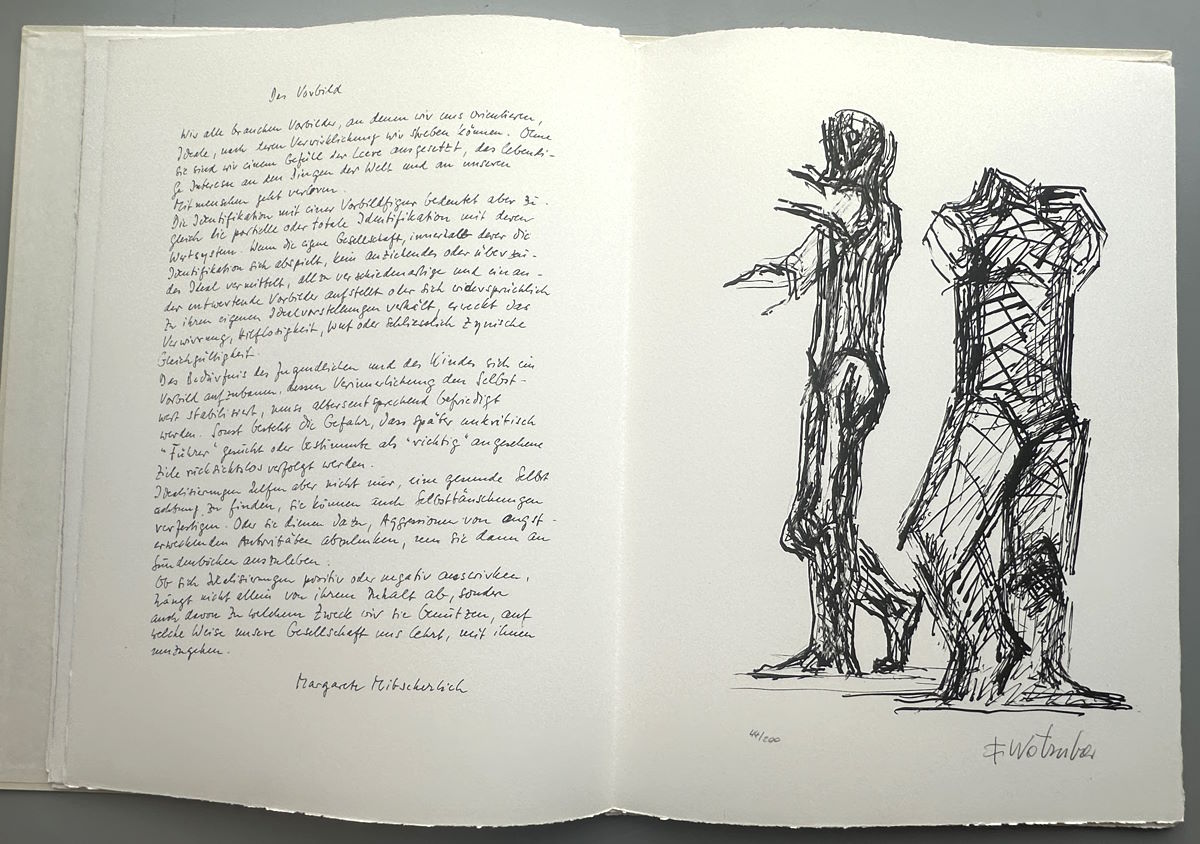 Das Vorbild
Wir alle brauchen Vorbilder, an denen wir uns orientieren,
Ideale, nach deren Verwirklichung wir streben können. Ohne
sie sind wir einem Gefühl der Leere ausgesetzt, das lebendi-
ge Interesse an den Dingen der Welt und an unseren
Mitmenschen geht verloren.
Die Identifikation mit einer Vorbildfigur bedeutet aber zu-
gleich die partielle oder totale Identifikation mit deren
Wertsystem. Wenn die eigene Gesellschaft, innerhalb derer die
Identifikation sich abspielt, kein anziehendes oder überzeugen-
des Ideal vermittelt, allzu verschiedenartige und einan-
der entwertende Vorbilder aufstellt oder sich widersprüchlich
zu ihren eigenen Idealvorstellungen verhält, erweckt das
Verwirrung, Hilflosigkeit, Wut oder schliesslich zynische
Gleichgültigkeit.
Das Bedürfnis des Jugendlichen und des Kindes sich ein
Vorbild aufzubauen, dessen Verinnerlichung den Selbst-
wert stabilisiert, muss altersentsprechend befriedigt
werden. Sonst besteht die Gefahr, dass später unkritisch
"Führer" gesucht oder bestimmte als "richtig" angesehene
Ziele rücksichtslos verfolgt werden.
Idealisierungen helfen aber nicht nur, eine gesunde Selbst
achtung zu finden, sie können auch Selbsttäuschungen
verfestigen. Oder sie dienen dazu, Aggressionen von angst-
erweckenden Autoritäten abzulenken, um sie dann an
Sündenböcken auszuleben.
Ob sich Idealisierungen positiv oder negativ auswirken,
hängt nicht allein von ihrem Inhalt ab, sondern
auch davon zu welchem Zweck wir sie benützen, auf
welche Weise unsere Gesellschaft uns lehrt, mit ihnen
umzugehen.
Margarete Mitscherlich
44/200
F. Wotruba